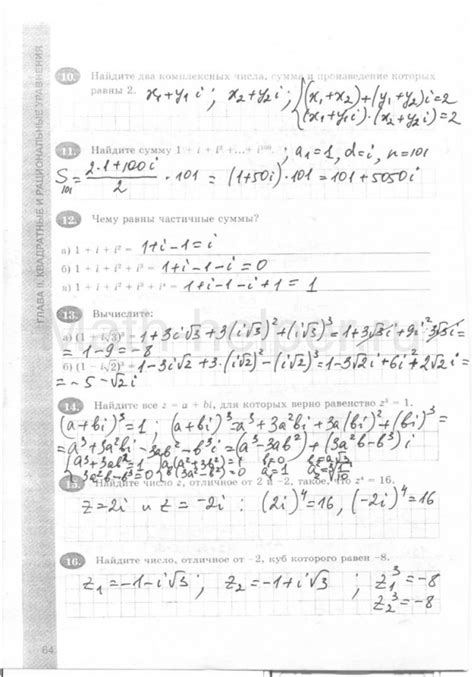 ГЛАВА II. КВАДРАТНЫЕ И РАЦИОНАЛЬНЫЕ УРАВНЕНИЯ
10. Найдите два комплексных числа, сумма и произведение которых
равны 2. x₁+y₁i ; x₂+y₂i ; { (x₁+x₂)+(y₁+y₂)i=2
(x₁+y₁i)·(x₂+y₂i)=2
11. Найдите сумму 1 + i + i² +...+ i¹⁰⁰. ; a₁=1, d=i, n=101
S₁₀₁ = (2·1+100i)/2 · 101 = (1+50i)·101 = 101+5050i
12. Чему равны частичные суммы?
а) 1 + i + i² = 1+i−1=i
б) 1 + i + i² + i³ = 1+i−1−i=0
в) 1 + i + i² + i³ + i⁴ = 1+i−1−i+1 = 1
13. Вычислите:
а) (1 + i√3)³ = 1+3i√3+3(i√3)²+(i√3)³=1+3√3i+9i²
=1−9=−8
б) (1 − i√2)³ = 1−3i√2+3·(i√2)²−(i√2)³=1−3√2i+6i²+2√2i=
=−5−√2i
14. Найдите все z = a + bi, для которых верно равенство z³ = 1.
(a+bi)³=1 ; (a+bi)³=a³+3a²bi+3a(bi)²+(bi)³=
=a³+3a²bi−3ab²−b³i=(a³−3ab²)+(3a²b−b³)i
15. Найдите число z, отличное от 2 и −2, такое, что z⁴ = 16.
z=2i и z=−2i : (2i)⁴=16, (−2i)⁴=16
16. Найдите число, отличное от −2, куб которого равен −8.
z₁=−1−i√3 ; z₂=−1+i√3 ; z₁³=−8
z₂³=−8
64